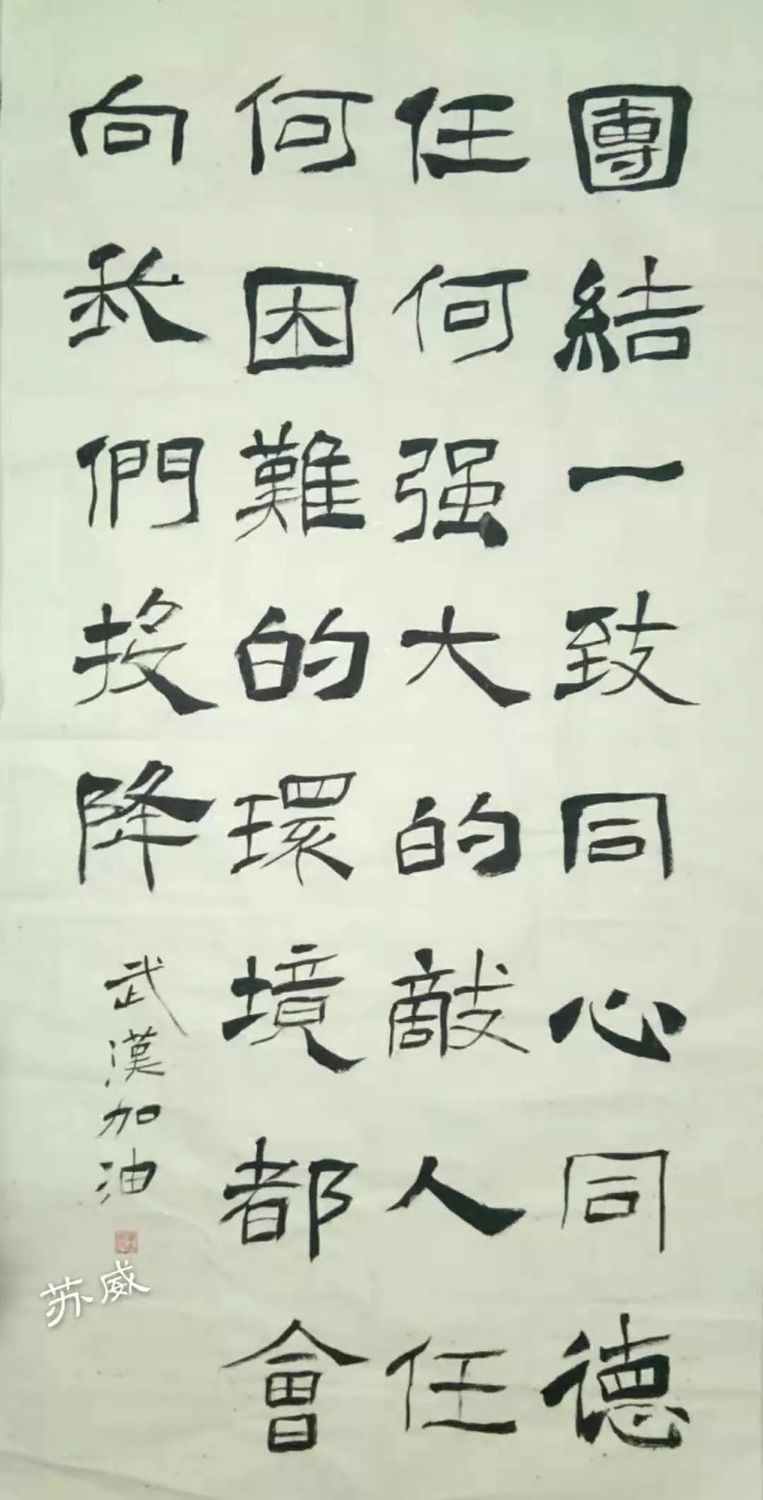 團結一致同心同德
任何强大的敵人任
何困難的環境都會
向我們投降
武漢加油
苏威